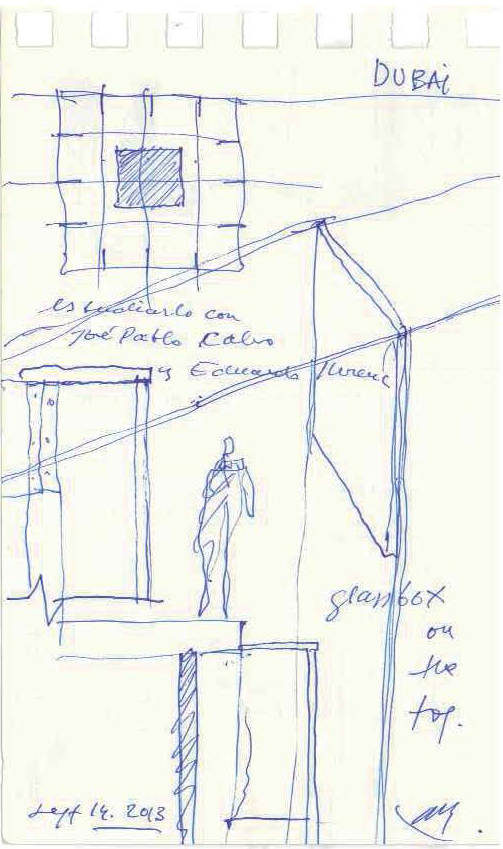 DUBAi
estudiarlo con
José Pablo Calvo
y Eduardo
glassbox
on
the
top.
Sept 14. 2013